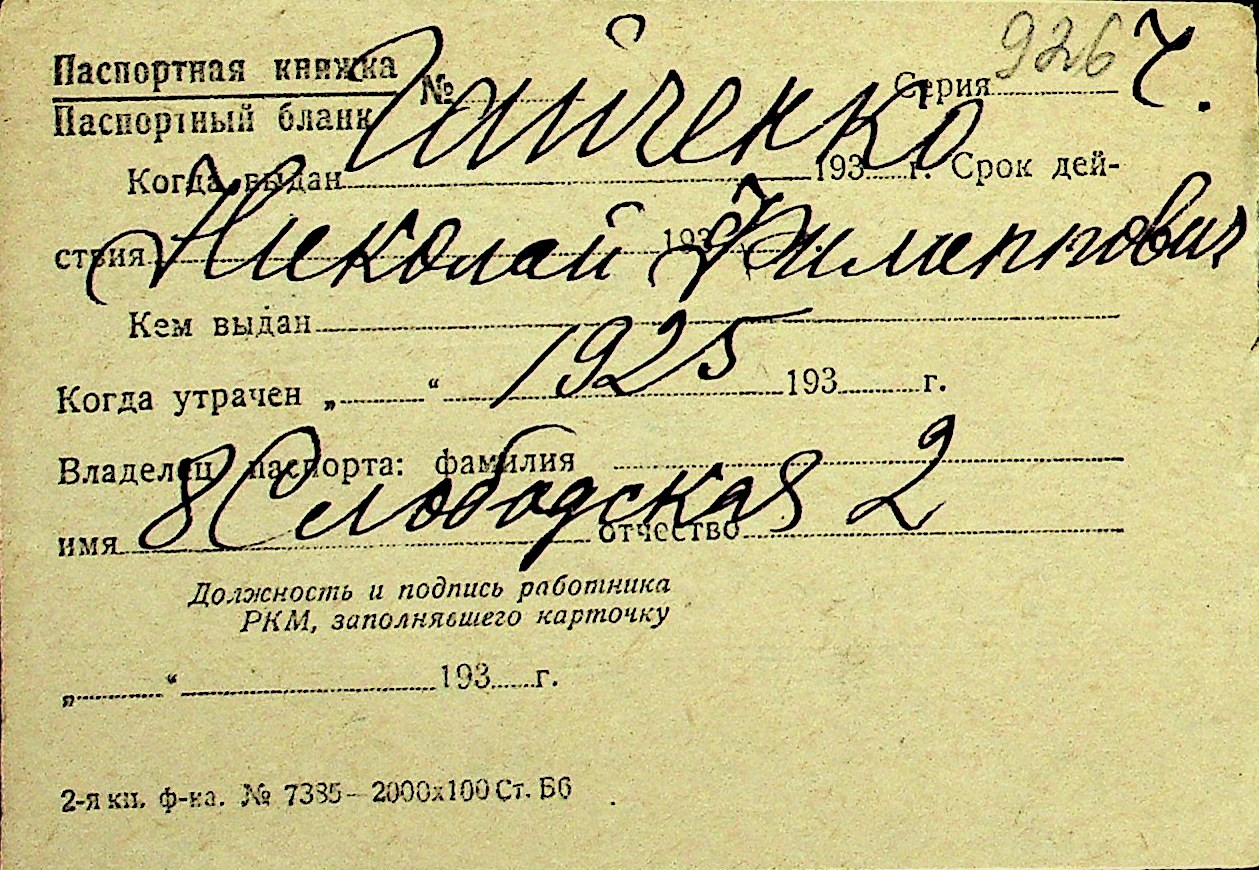 926
Паспортная книжка № Серия
Гайченко
Паспортный бланк
Когда выдан 193 г. Срок дей-
Николай Филиппович
ствия 193
Кем выдан
1925
Когда утрачен „ “ 193 г.
Владелец паспорта: фамилия
8 Слободская 82
имя отчество
Должность и подпись работника
РКМ, заполнявшего карточку
„ “ 193 г.
2-я кн. ф-ка. № 7385 – 2000х100 Ст. Б6